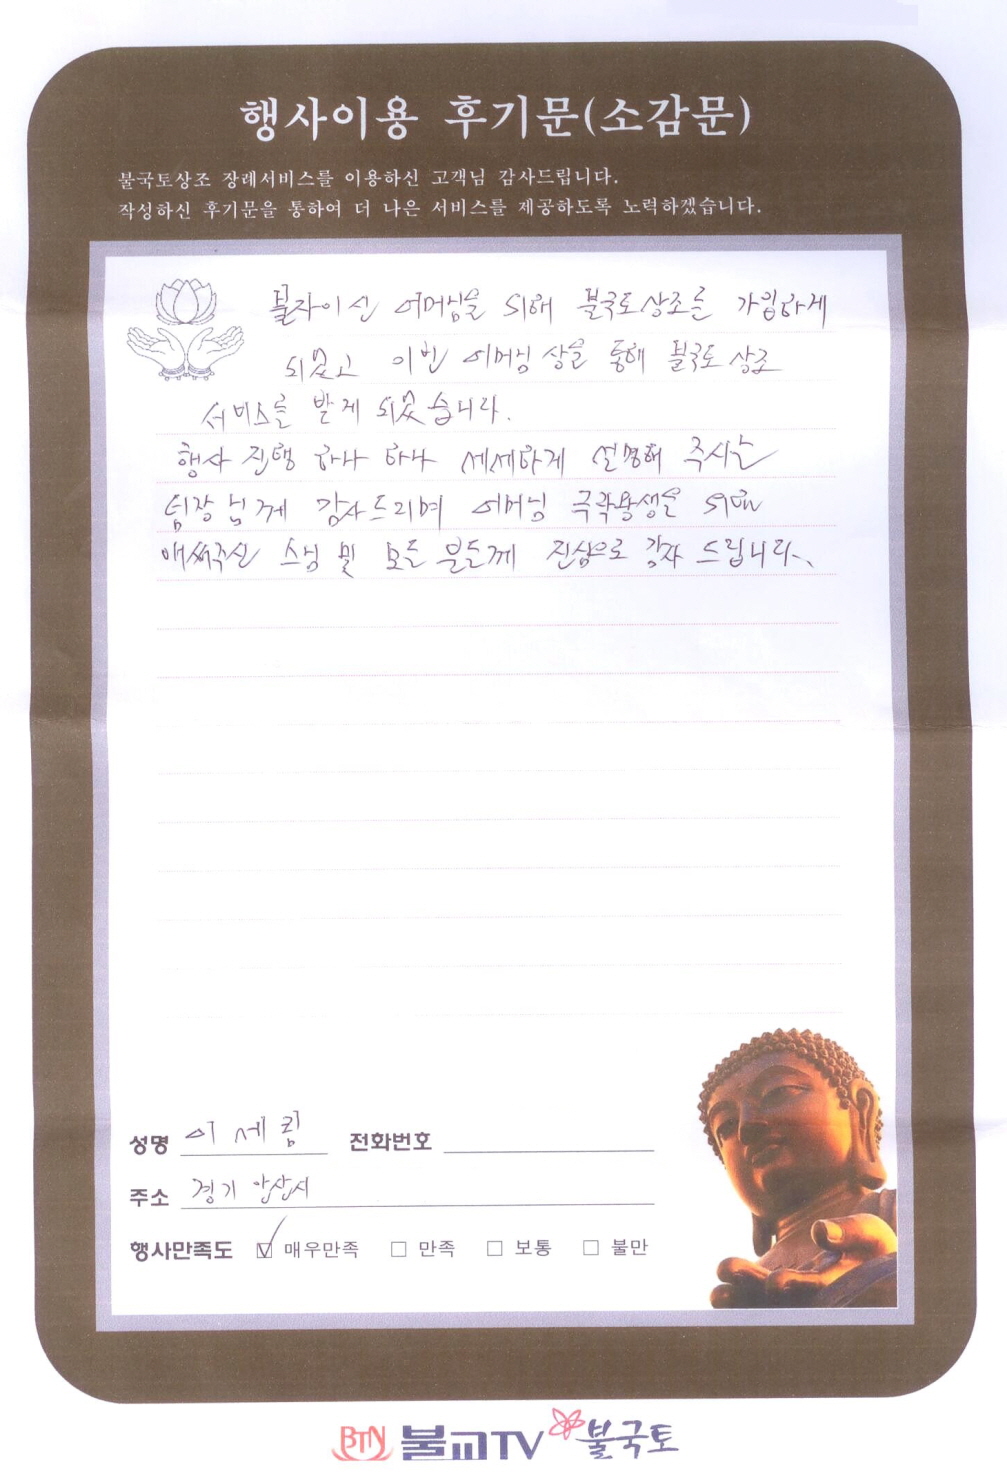 행사이용 후기문(소감문)
불국토상조 장례서비스를 이용하신 고객님 감사드립니다.
작성하신 후기문을 통하여 더 나은 서비스를 제공하도록 노력하겠습니다.
불자이신 어머님을 위해 불국토상조를 가입하게
되었고 이번 어머님 상을 통해 불국토 상조
서비스를 받게 되었습니다.
행사 진행 하나 하나 세세하게 설명해 주시는
팀장님께 감사드리며 어머님 극락왕생을 위해
애써주신 스님 및 모든 분들께 진심으로 감사 드립니다.
성명 이세림 전화번호
주소 경기 안산시
행사만족도 ☑ 매우만족 □ 만족 □ 보통 □ 불만
BTN 불교TV 불국토